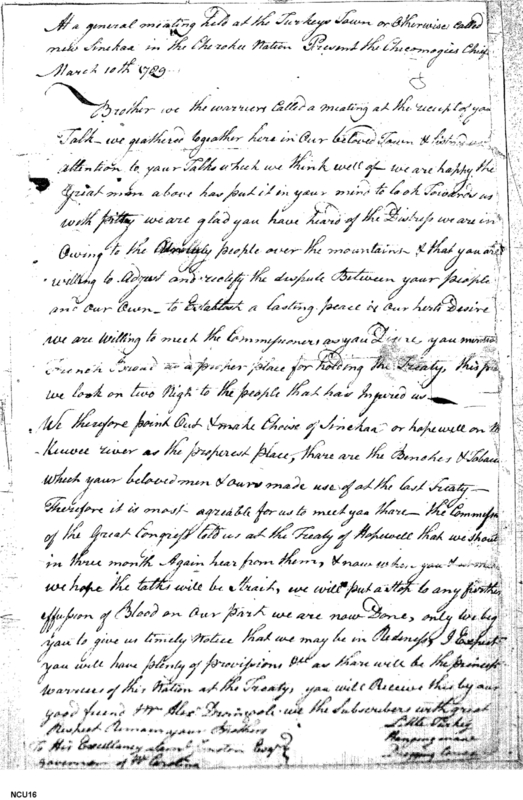 At a general meating held at the Turkeys Town or Otherwise Called
new Sinekaa in the Cherokee Nation Present the Checomogies Chiefs
March 10th 1789
Brother we the warriers Called a meating at the receipt of you
Talk we geathered togeather here in Our beloved Town &
attention to your Talks which we think well of we are happy the
Great man above has put it in your mind to look Towards us
with pittey we are glad you have heard of the Distress we are in
Owing to the people over the mountains & that you are
willing to Adjust and rectify the dispute Between your people
and Our Own to Establish a lasting peace is Our herts Desire
we are willing to meet the Commissioners as you Desire, you
French Broad as a proper place for holding the Treaty, this
we look on two Nigh to the people that has Injured us
We therefore point Out & make Choice of Sinekaa or hopewell on
Keuwee river as the properest place, thare are the Benches &
which your beloved men & ours made use of at the last Treaty
Therefore it is most agreable for us to meet you thare the
of the Great Congress told us at the Treaty of Hopewell that we should
in three month Again hear from them, & now when you
we hope the talks will be Strait, we will put a Stop to any further
effusion of Blood on Our part we are now Done, only we beg
you to give us timely Notice that we may be in Rediness, I Expect
you will have plenty of provissions &c as thare will be the
warriers of this Nation at the Treaty, you will Receive this by our
good friend Mr Alexr we the Subscribers with great
Respect Remain your Brothers
Little Turkey
To His Excellancy Esqr
Hanging
governer of No Carolina